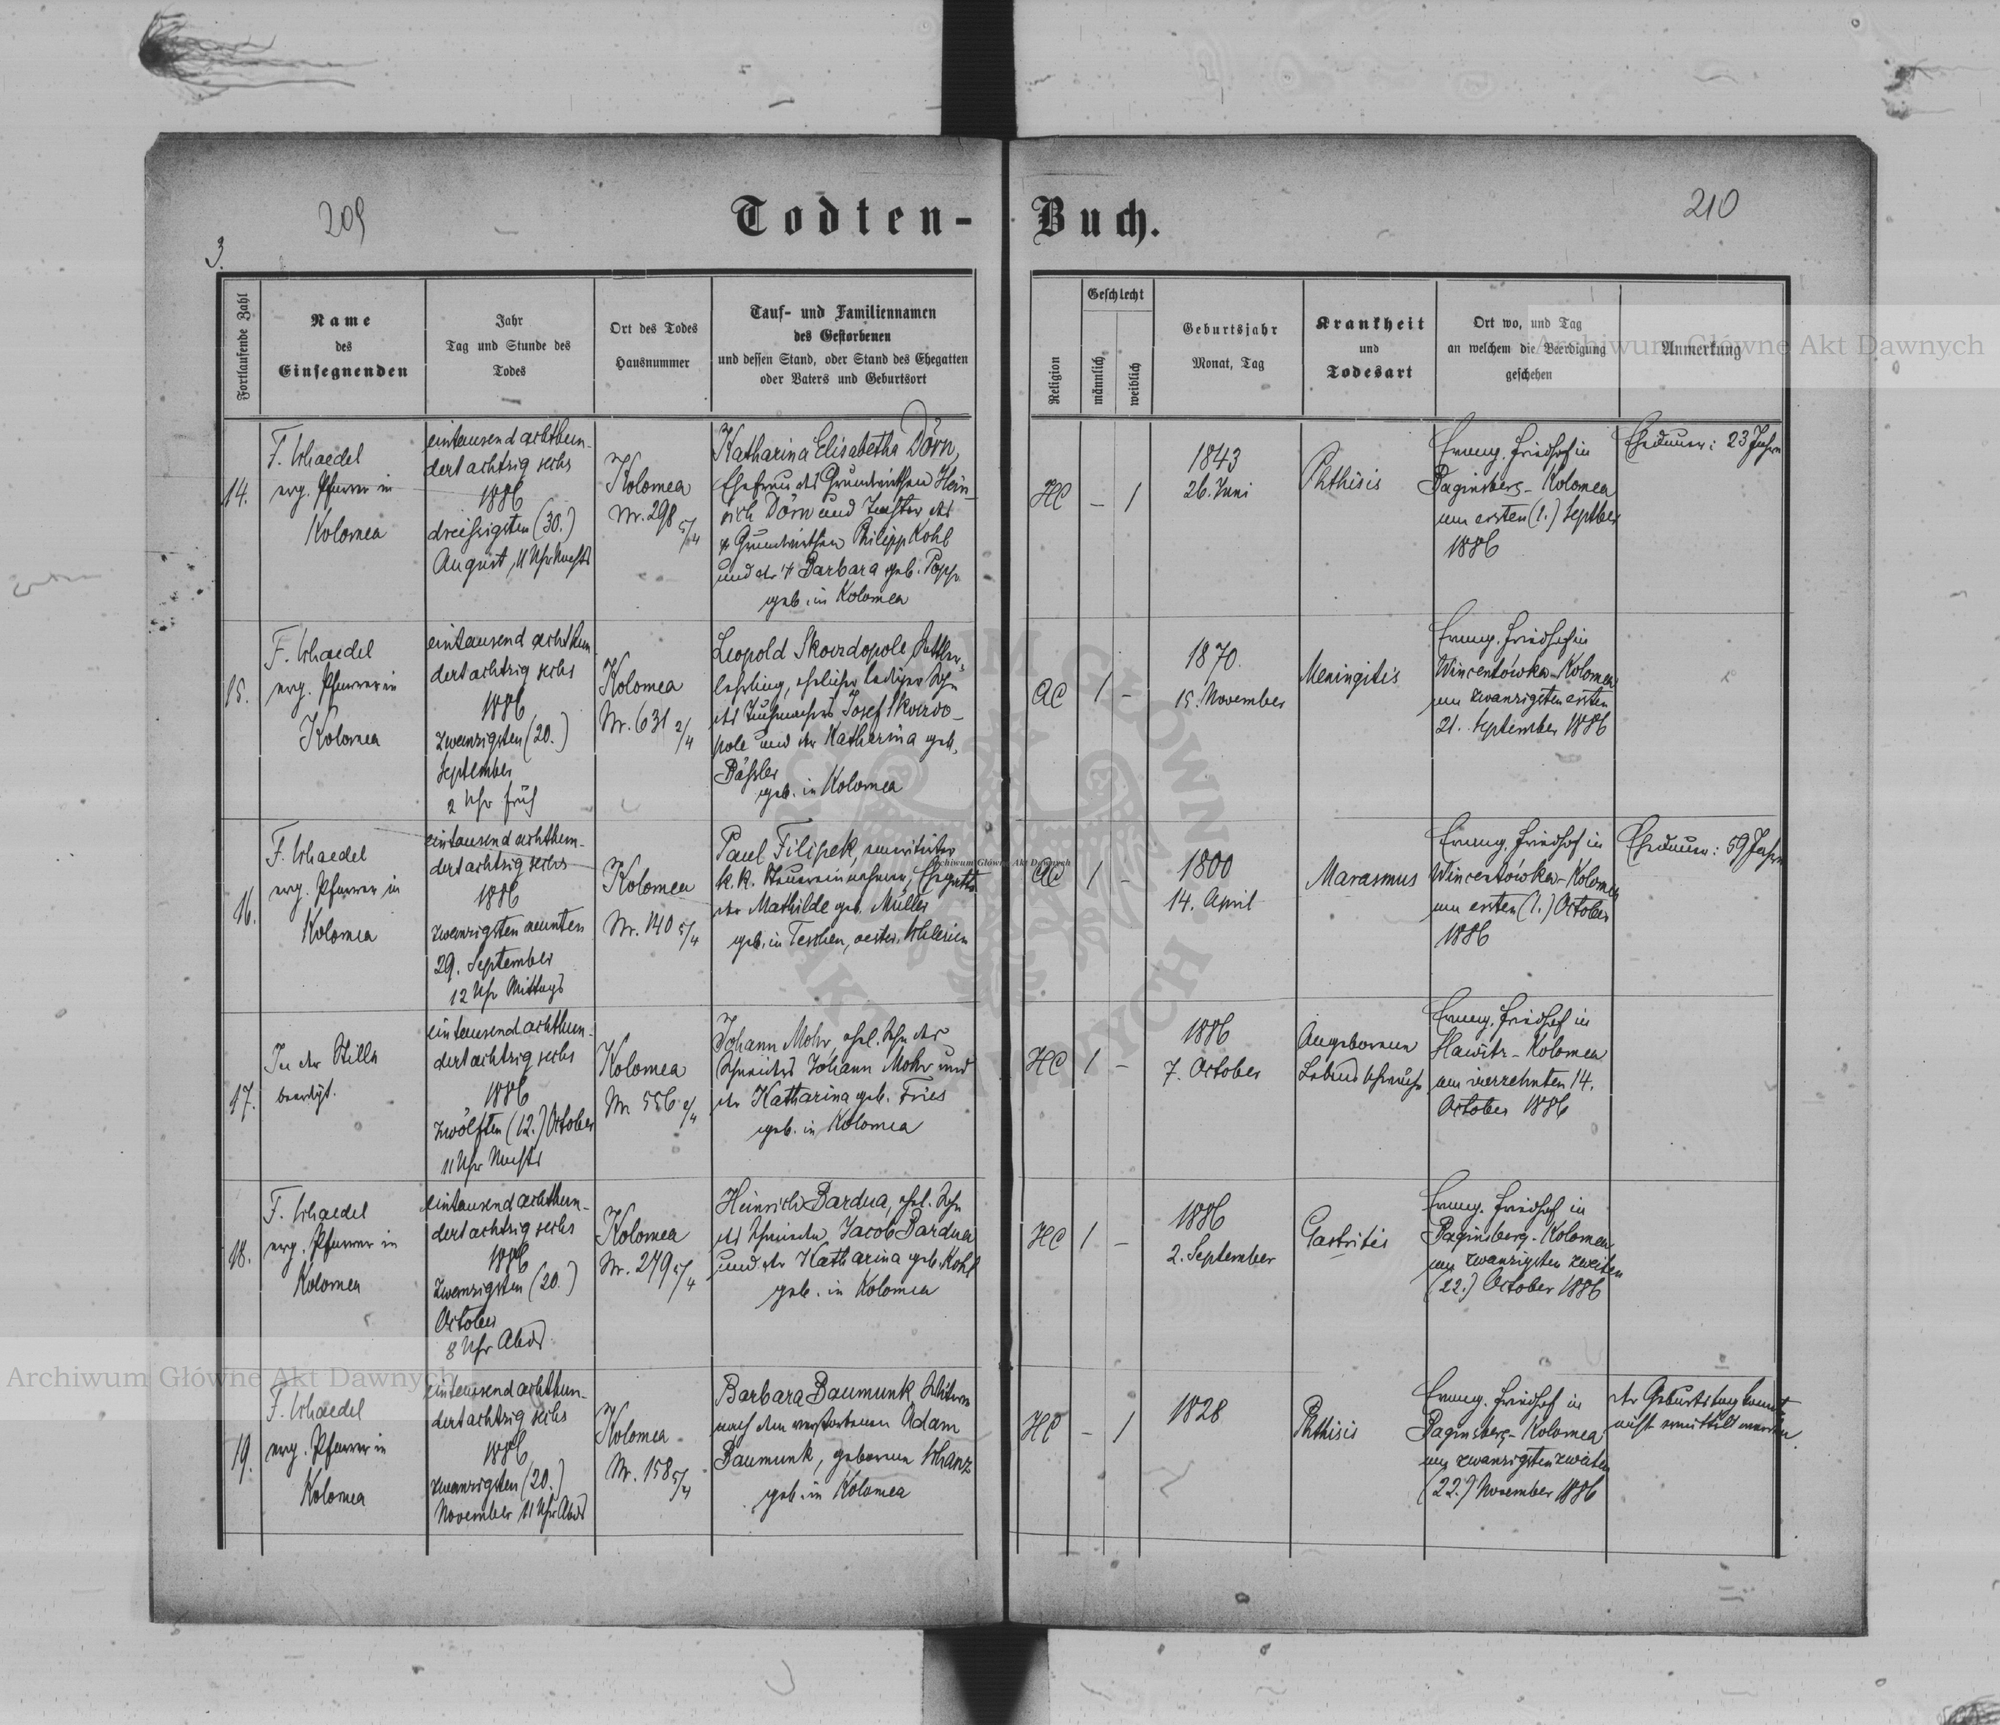 209
210
3.
Todten-Buch.
Fortlaufende Zahl
Name
des
Einsegnenden
Jahr
Tag und Stunde des
Todes
Ort des Todes
Hausnummer
Tauf- und Familiennamen
des Gestorbenen
und dessen Stand, oder Stand des Ehegatten
oder Vaters und Geburtsort
Religion
Geschlecht
männlich
weiblich
Geburtsjahr
Monat, Tag
Krankheit
und
Todesart
Ort wo, und Tag
an welchem die Beerdigung
geschehen
Anmerkung
14.
F. Schaedel
evg. Pfarrer in
Kolomea
eintausend achthun-
dert achtzig sechs
1886
dreißigsten (30.)
August, 11 Uhr Nachts
Kolomea
Nr. 298 5/4
Katharina Elisabetha Dörn,
Ehefrau des Grundwirthen Hein-
rich Dörn und Tochter des
† Grundwirthen Philipp Kohl
und der † Barbara geb. Popp.
geb. in Kolomea
HC
–
1
1843
26. Juni
Phthisis
Evang. Friedhof in
Baginsberg - Kolomea
am ersten (1.) Septber
1886
Ehedauer: 23 Jahre
15.
F. Schaedel
evg. Pfarrer in
Kolomea
eintausend achthun
dert achtzig sechs
1886
zwanzigsten (20.)
September
2 Uhr früh
Kolomea
Nr. 631 2/4
Leopold Skowdopole, Sattler-
lehrling, ehelicher lediger Sohn
des Tuchmachers Josef Skowdo-
pole und der Katharina geb.
Bäßler
geb. in Kolomea
AC
1
–
1870.
15. November
Meningitis
Evang. Friedhof in
Wincentówka - Kolomea
am zwanzigsten ersten
21. September 1886
16.
F. Schaedel
evg. Pfarrer in
Kolomea
eintausend achthun-
dert achtzig sechs
1886
zwanzigsten neunten
29. September
12 Uhr Mittags
Kolomea
Nr. 140 5/4
Paul Filipek, emeritirter
k. k. Steuereinnehmer, Ehegatte
der Mathilde geb. Müller
geb. in Teschen, oester. Schlesien
AC
1
–
1800
14. April
Marasmus
Evang. Friedhof in
Wincentówka - Kolomea
am ersten (1.) October
1886
Ehedauer: 59 Jahre
17.
In der Stille
beerdigt.
eintausend achthun-
dert achtzig sechs
1886
zwölften (12.) October
11 Uhr Nachts
Kolomea
Nr. 556 2/4
Johann Mohr, ehel. Sohn des
Schneiders Johann Mohr und
der Katharina geb. Fries
geb. in Kolomea
HC
1
–
1886
7. October
Angeborene
Lebensschwäche
Evang. Friedhof in
Slawitz - Kolomea
am vierzehnten 14.
October 1886
18.
F. Schaedel
evg. Pfarrer in
Kolomea
eintausend achthun-
dert achtzig sechs
1886
zwanzigsten (20.)
October
8 Uhr Abds
Kolomea
Nr. 279 5/4
Heinrich Bardua, ehel. Sohn
des Schmiedes Jacob Bardua
und der Katharina geb. Kohl
geb. in Kolomea
HC
1
–
1886
2. September
Gastritis
Evang. Friedhof in
Baginsberg - Kolomea
am zwanzigsten zweiten
(22.) October 1886
19.
F. Schaedel
evg. Pfarrer in
Kolomea
eintausend achthun-
dert achtzig sechs
1886
zwanzigsten (20.)
November 11 Uhr Abds
Kolomea
Nr. 158 5/4
Barbara Baumunk Witwe
nach dem verstorbenen Adam
Baumunk, geborene Schanz
geb. in Kolomea
HC
–
1
1828
Phthisis
Evang. Friedhof in
Baginsberg - Kolomea
am zwanzigsten zweiten
(22.) November 1886
der Geburtstag konnte
nicht ermittelt werden.
Archiwum Główne Akt Dawnych
Archiwum Główne Akt Dawnych
Archiwum Główne Akt Dawnych